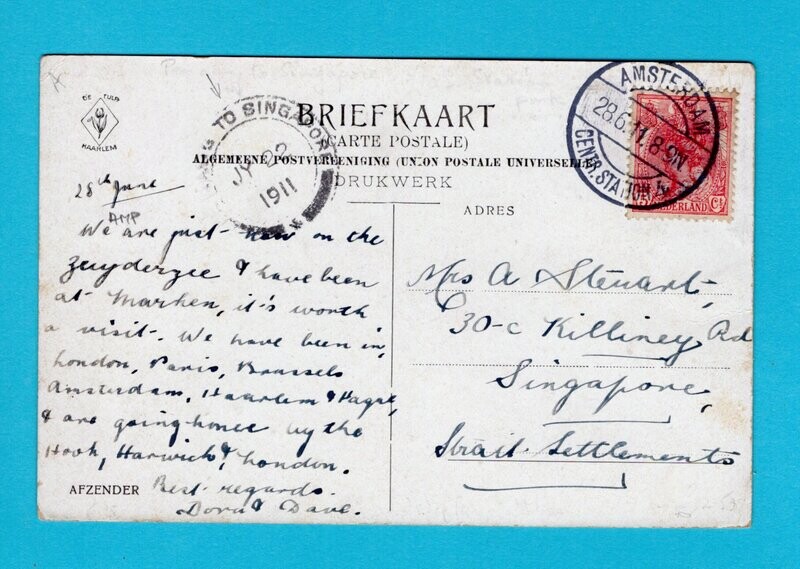 DE TULP
HAARLEM
TO SINGAPOR
JY 22
1911
AMSTERDAM
28.6.11. 8-9N
CENTR. STATION 4
NEDERLAND
BRIEFKAART
(CARTE POSTALE)
ALGEMEENE POSTVEREENIGING (UNION POSTALE UNIVERSELLE)
DRUKWERK
ADRES
28th June
AMP
We are just now on the
Zuyderzee & have been
at Marken, it's worth
a visit. We have been in
London, Paris, Brussels
Amsterdam, Haarlem & Hague,
& are going home by the
Hook, Harwich & London.
Best regards.
Dora & Dave.
AFZENDER
Mrs A Steuart,
30-c Killiney Rd
Singapore,
Strait Settlements